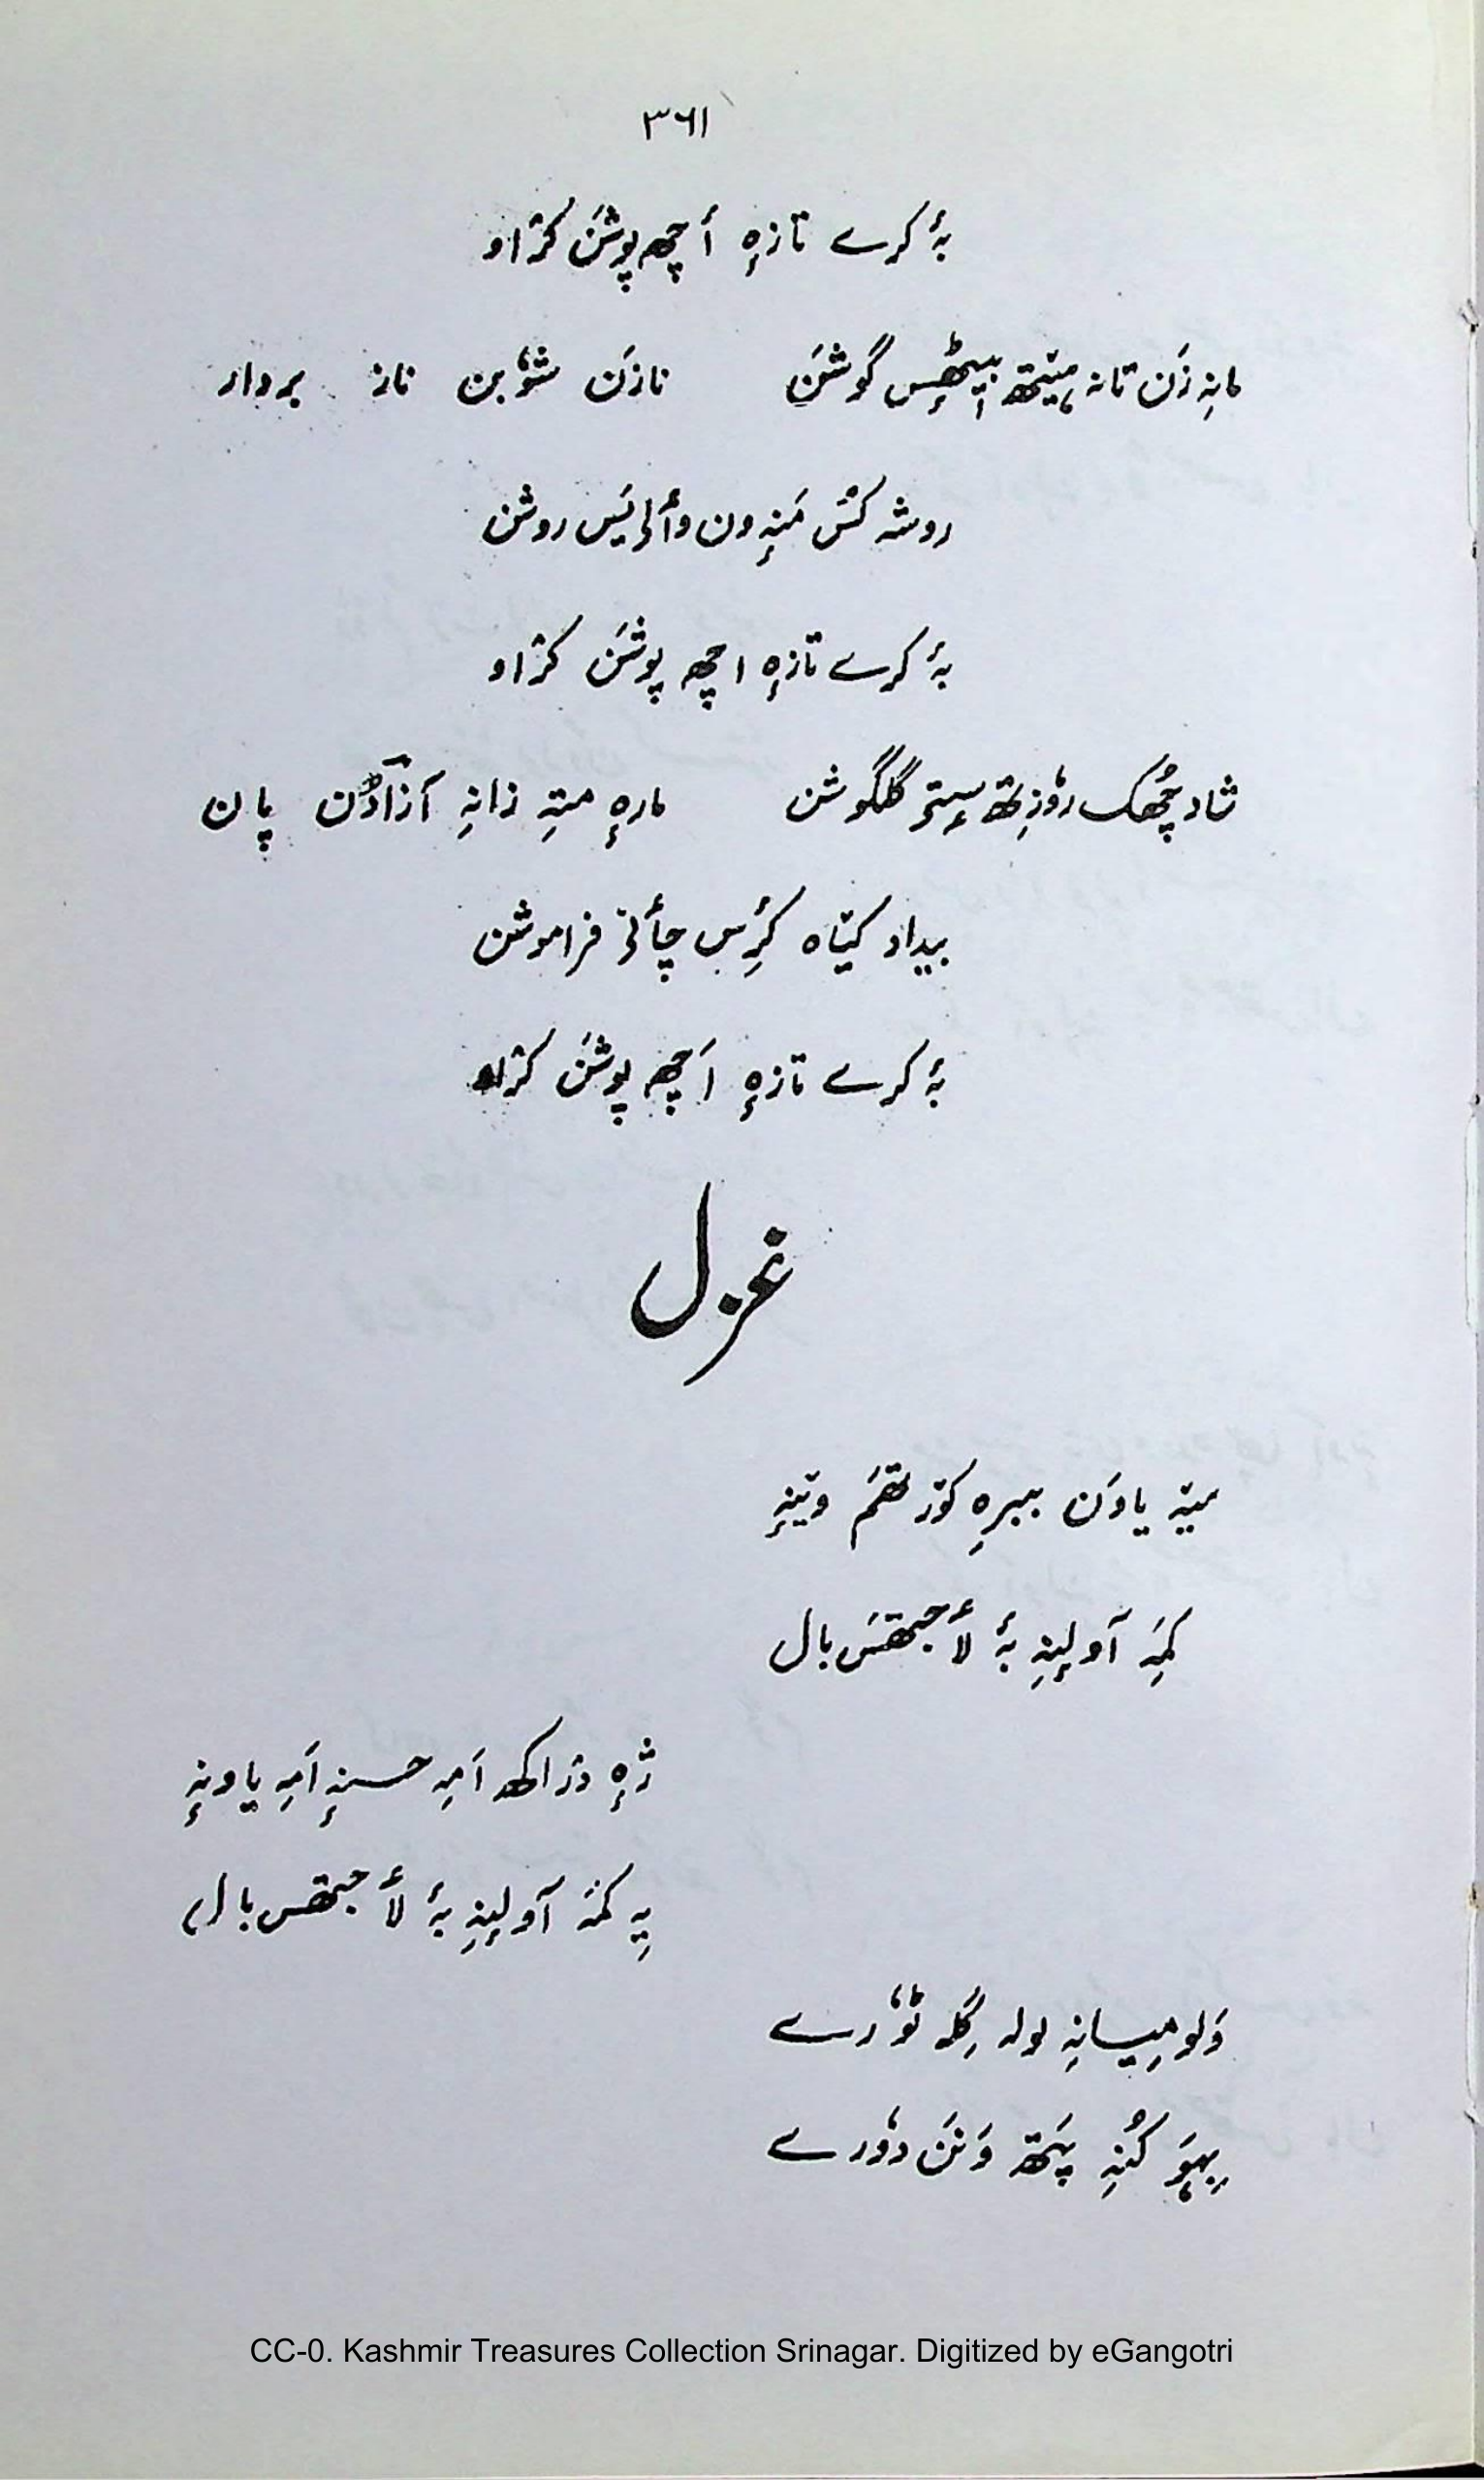 ۳٦۱
بۂ کرے تازہٕ أچھ پوشَن کژاو
مانہِ زَن تانہ ہیٚتھ بیٖٹھِس گوشَن نازَن شوٗبن ناز بردار
روشہ کتَس مَنہِ ون وألۍ یَس روشن
بۂ کرے تازہٕ اچھ پوشَن کژاو
شاد چھُک روٗزِتھ سیٖتۍ گلگوشن مارہٕ متہِ زانہِ آزادُن پان
بیداد کیٚاہ کرِٔس چأنۍ فراموشن
بۂ کرے تازہٕ اَچھ پوشَن کژاو
غزل
میٚہ یاوَن ببرہِ کوٚرتھَم وٚینہِ
کمِہَ آولینہِ بۂ لأجتھَس بال
ژہٕ دژاکھ اَمہِ حسنہٕ اَمہِ یاونہٕ
یہِ کمہَ آولینہِ بۂ لأجتھس بال
وَلو میانہِ لولہ گِلہ ٹوٗرے
بِہوَ کُنہِ پَتھ وَنَن دوٗرے
CC-0. Kashmir Treasures Collection Srinagar. Digitized by eGangotri